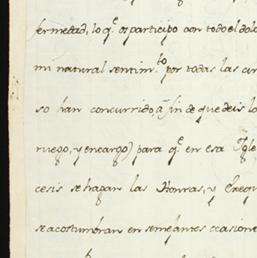 fermedad, lo q.e os participo con todo el dolo
mi natural sentim.to por todas las cir
so han concurrido, a fin de que deis lo
ruego, y encargo) para q.e en esa Igle
cesis se hagan las Honras, y Exequ
se acostumbran en semejantes ocasione